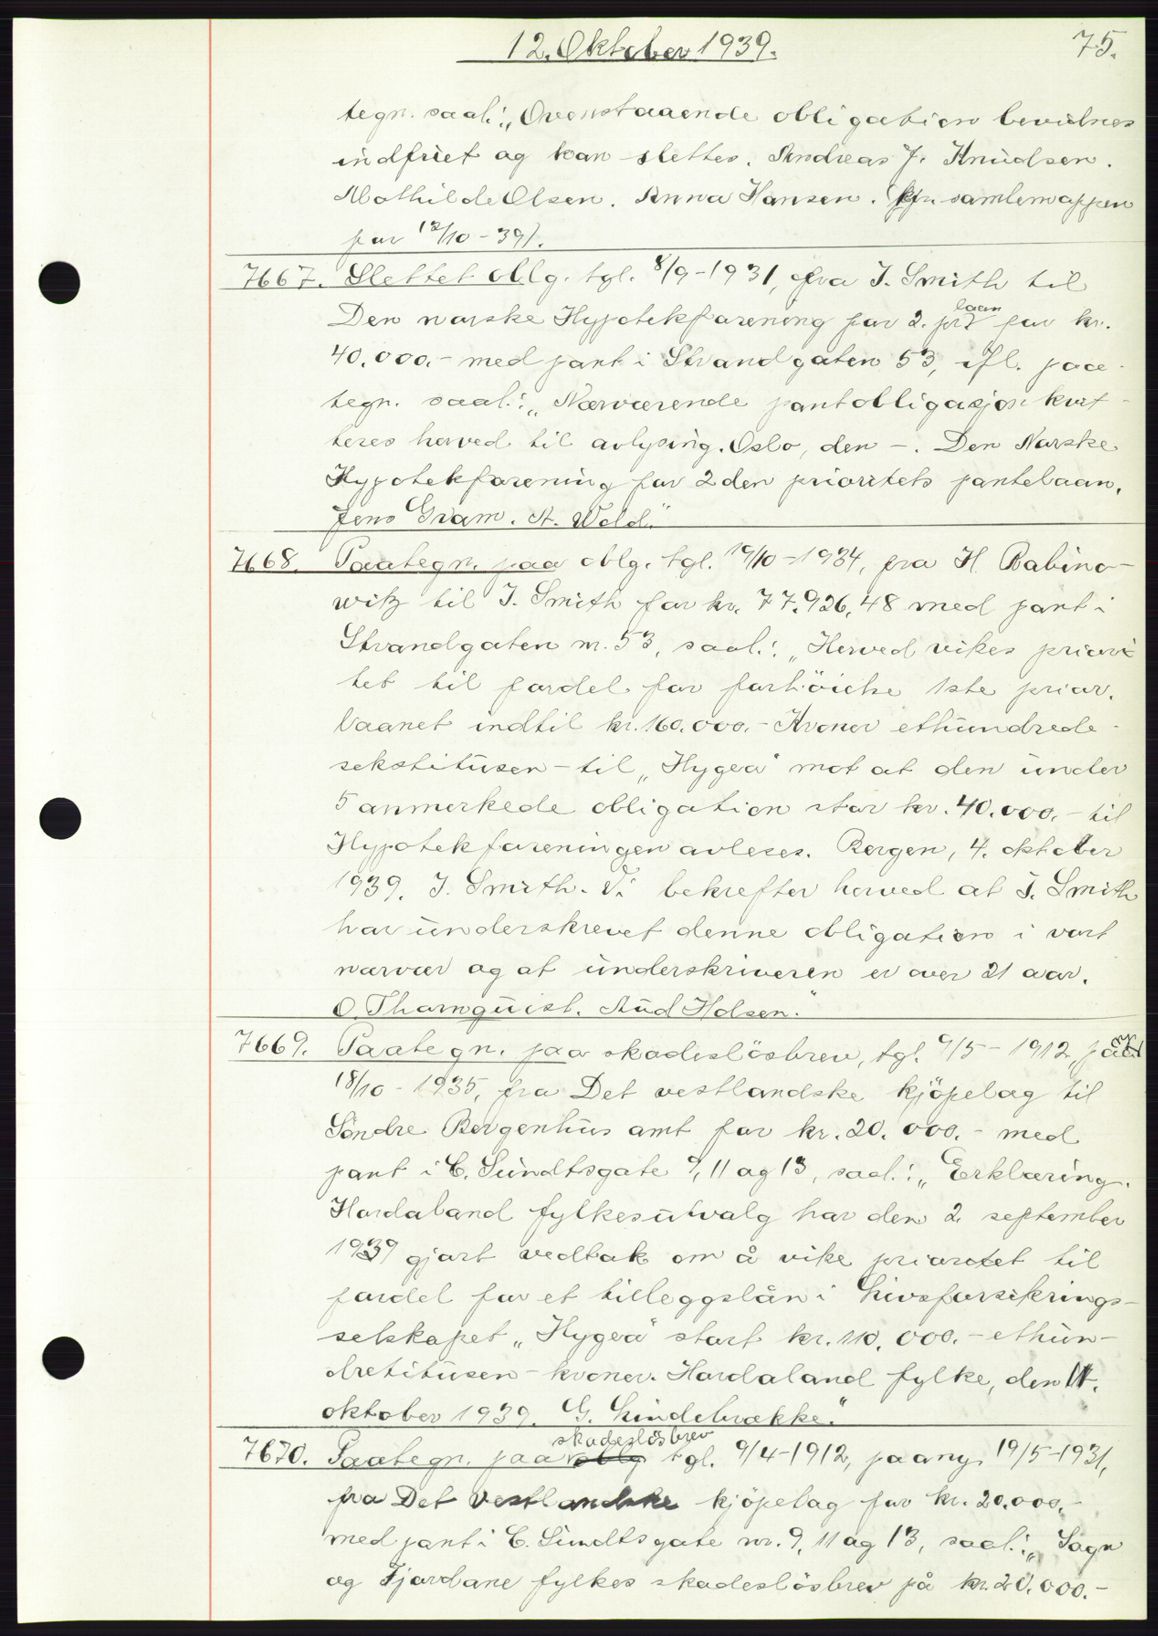 12. Oktober 1939.
75.
tegn. saal.: „Ovenstaaende obligation bevidnes
indfriet og kan slettes. Andreas J. Knudsen.
Mathilde Olsen. Anna Hansen. (Kfr. samlemappen
for 12/10-39).
7667. Slettet oblg. tgl. 8/9-1931, fra J. Smith til
Den norske Hypotekforening for 2. pr. laan for kr.
40.000.- med pant i Strandgaten 53, ifl. paa-
tegn. saal.: „Nærværende pantobligasjon kvit-
teres herved til avlysing. Oslo, den -. Den Norske
Hypotekforening for 2den prioritets pantelaan.
Jens Gram. A. Wold."
7668. Paategn. paa oblg. tgl. 19/10-1934, fra H. Rabino-
witz til J. Smith for kr. 77.926,48 med pant i
Strandgaten nr. 53, saal.: „Herved vikes priori-
tet til fordel for forhöiche 1ste prior.
laanet indtil kr. 160.000.- Kroner ethundrede-
sekstitusen - til „Hygea" mot at den under
5 anmerkede obligation stor kr. 40.000.- til
Hypotekforeningen avleses. Bergen, 4. oktober
1939. J. Smith. Vi bekrefter herved at J. Smith
har underskrevet denne obligation i vort
nærvær og at underskriveren er over 21 aar.
O. Thornquist. Aud Holsen."
7669. Paategn. paa skadeslösbrev, tgl. 9/5-1912, på ny
18/10-1935, fra Det vestlandske kjöpelag til
Söndre Bergenhus amt for kr. 20.000.- med
pant i C. Sundtsgate 9, 11 og 13, saal.: „Erklæring.
Hordaland fylkesutvalg har den 2. september
1939 gjort vedtak om å vike prioritet til
fordel for et tilleggslån i Livsforsikrings-
selskapet „Hygea" stort kr. 110.000.- ethun-
dretitusen - kroner. Hordaland fylke, den 11.
oktober 1939. G. Lindebrække."
7670. Paategn. paa skadeslösbrev tgl. 9/4-1912, paany 19/5-1931,
fra Det vestlandske kjöpelag for kr. 20.000.-
med pant i C. Sundtsgate nr. 9, 11 og 13, saal.: „Sogn
og Fjordane fylkes skadeslösbrev på kr. 20.000.-